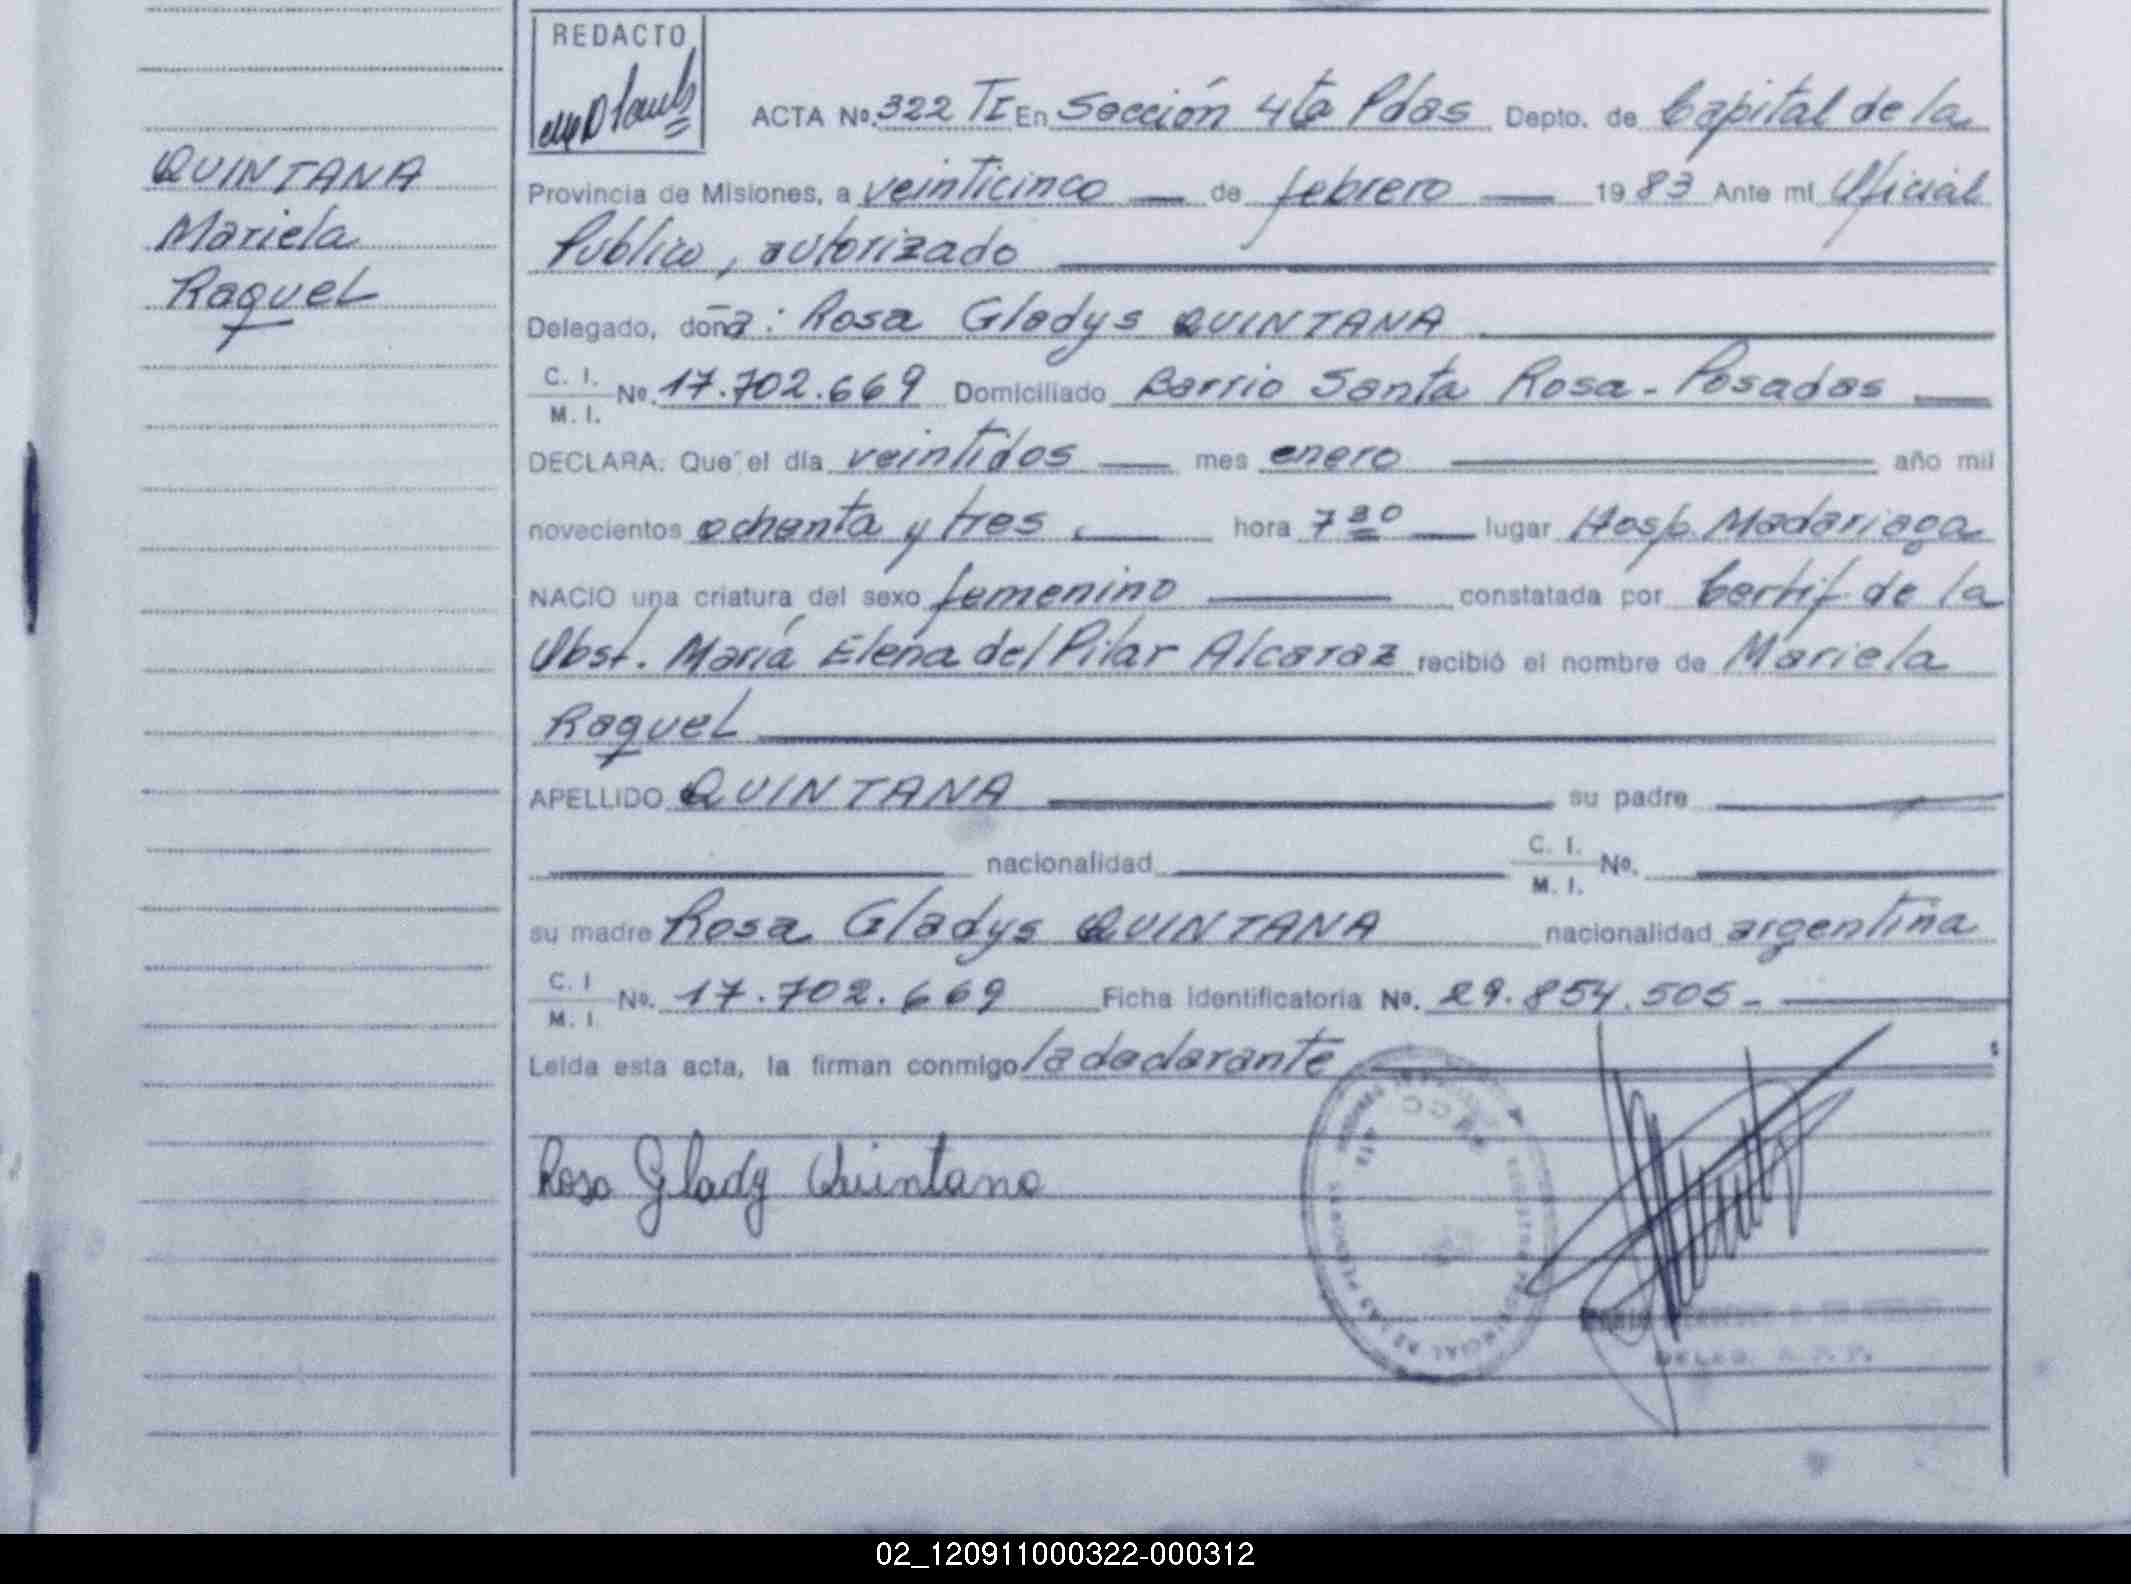 REDACTO
ACTA Nº. 322 TI En Sección 4ta Pdas Depto. de Capital de la
QUINTANA
Mariela
Raquel
Provincia de Misiones, a veinticinco de febrero 1983 Ante mí Oficial
Público, autorizado
Delegado, doña: Rosa Gladys QUINTANA
C. I.
M. I. Nº. 17.702.669 Domiciliado Barrio Santa Rosa - Posadas
DECLARA: Que el día veintidos mes enero año mil
novecientos ochenta y tres hora 7 30 lugar Hosp. Madariaga
NACIO una criatura del sexo femenino constatada por Certif. de la
Obst. María Elena del Pilar Alcaraz recibió el nombre de Mariela
Raquel
APELLIDO QUINTANA su padre
nacionalidad C. I.
M. I. Nº.
su madre Rosa Gladys QUINTANA nacionalidad argentina
C. I
M. I Nº. 17.702.669 Ficha identificatoria Nº. 29.854.505 -
Leída esta acta, la firman conmigo la declarante
Rosa Glady Quintana
02_120911000322-000312